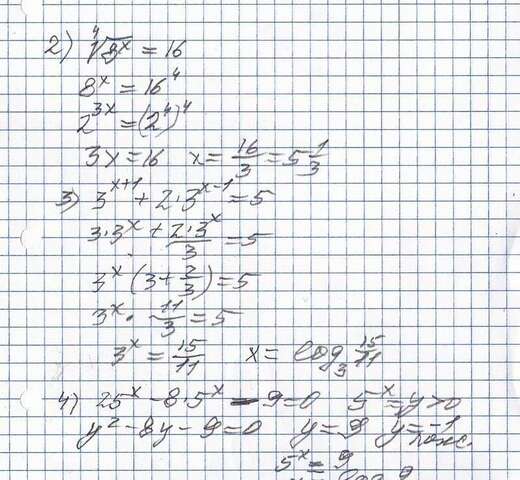 2) ⁴√8^x = 16
8^x = 16^4
2^3x = (2^4)^4
3x = 16 x = 16/3 = 5 1/3
3) 3^x+1 + 2·3^x-1 = 5
3·3^x + 2·3^x/3 = 5
3^x (3 + 2/3) = 5
3^x · 11/3 = 5
3^x = 15/11 x = log_3 15/11
4) 25^x - 8·5^x - 9 = 0 5^x = y > 0
y^2 - 8y - 9 = 0 y = 9 y = -1
5^x = 9